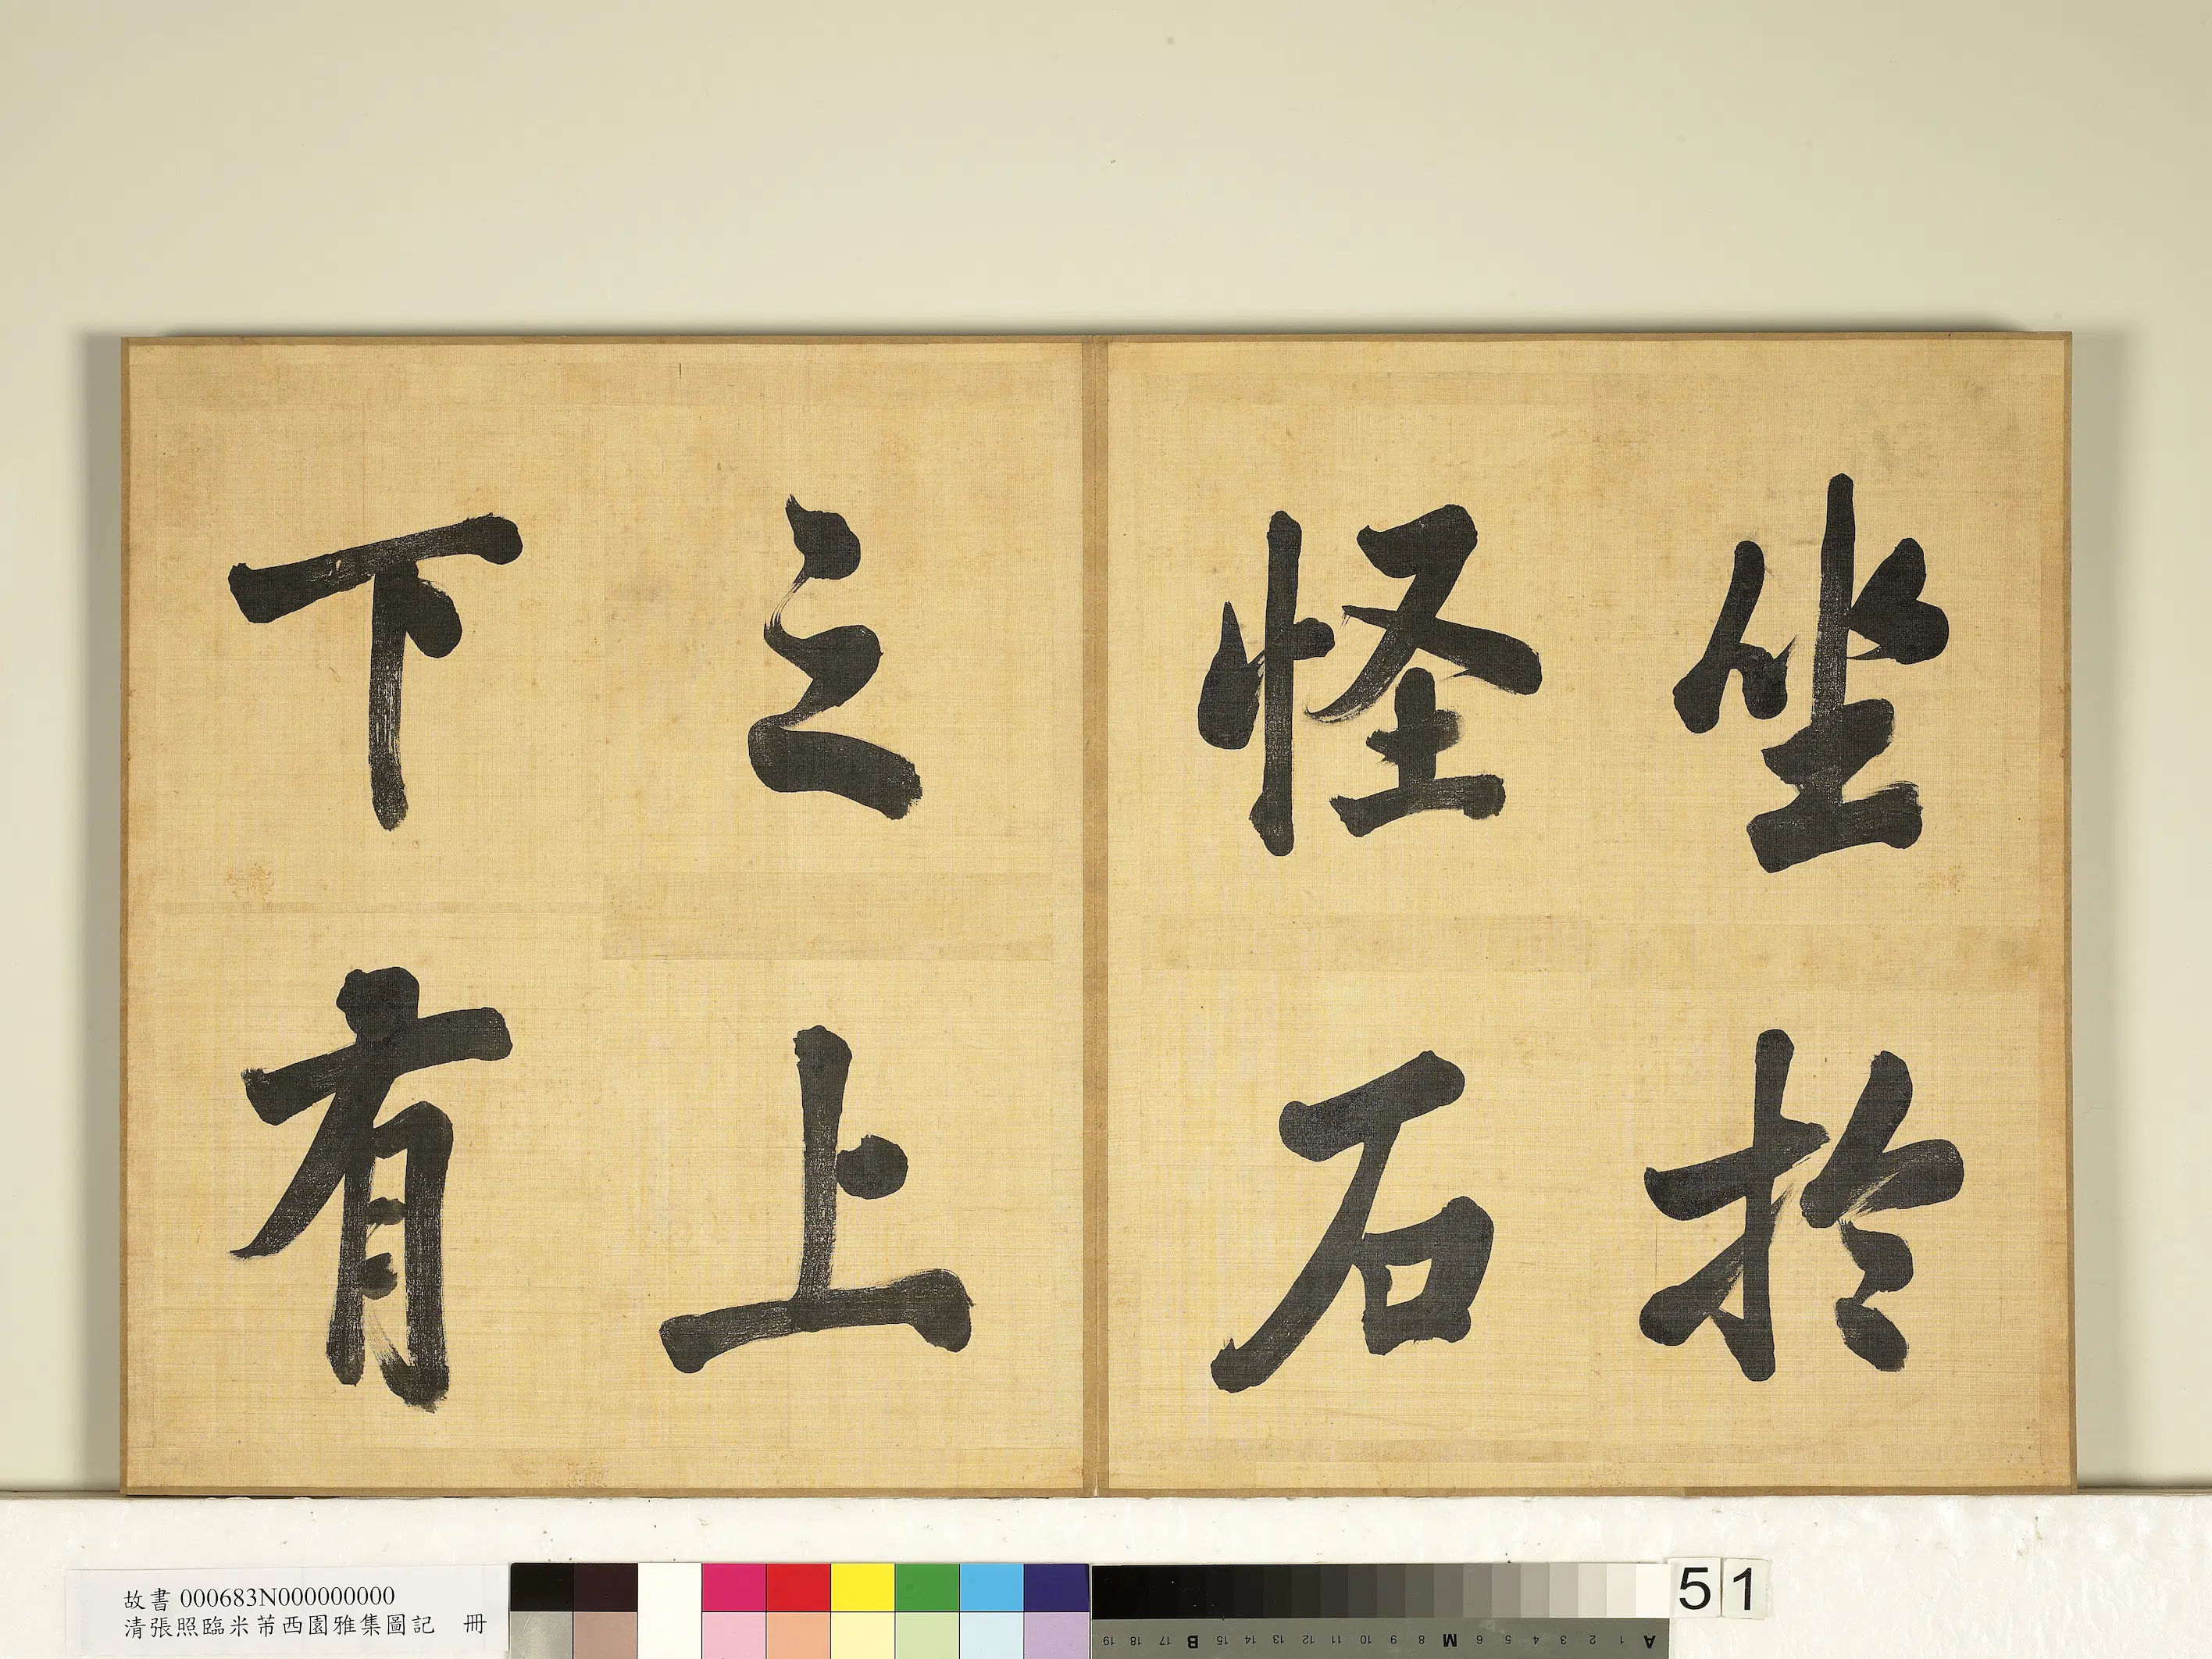 坐於
怪石
之上
下有
故書 000683N000000000
清張照臨米芾西園雅集圖記 冊
51
A 1 2 3 4 5 6 M 8 9 10 11 12 13 14 15 B 17 18 19